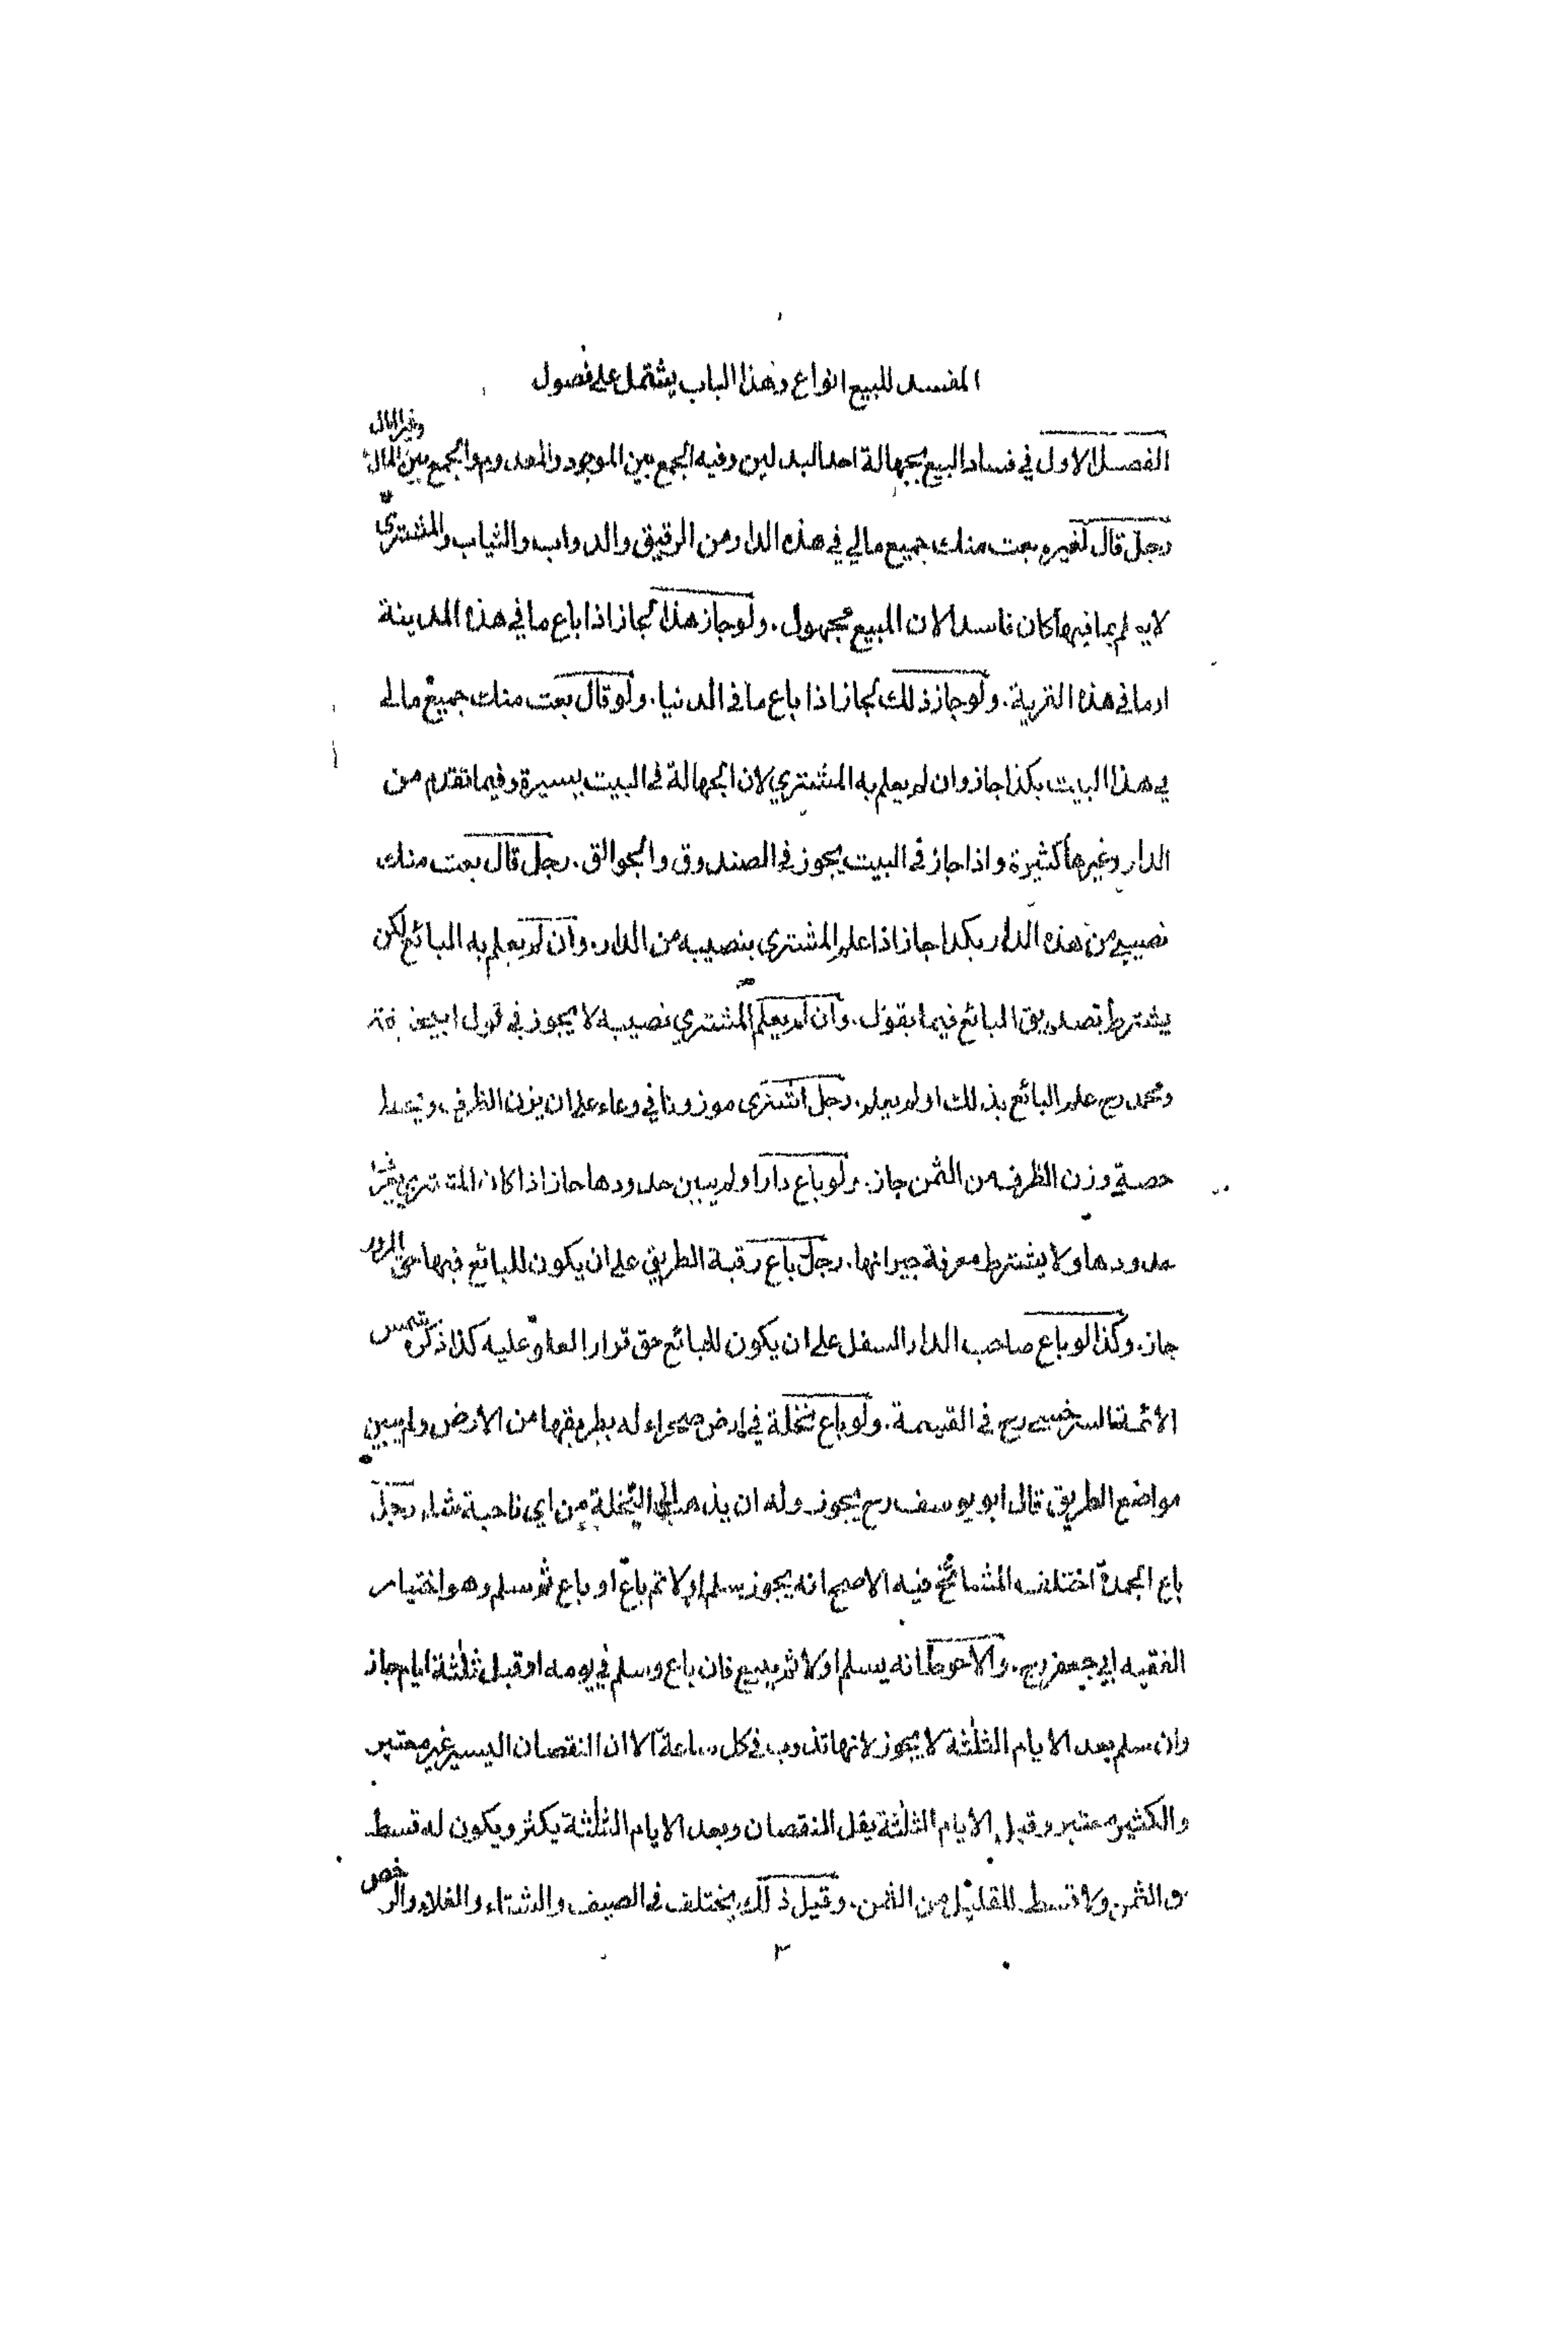 المفسد للبيع انواع وهذا الباب يشتمل على فصول
الفصل الاول في فساد البيع بجهالة احد البدلين وفيه الجمع بين الموجود والمعدوم والجمع بين المال وغير المال
رجل قال لغيره بعت منك جميع مالي في هذه الدار من الرقيق والدواب والثياب والمشتري
لا يعلم بما فيها كان فاسدا لان المبيع مجهول. ولو جاز هذا لجاز اذا باع ما في هذه المدينة
او ما في هذه القرية. ولو جاز ذلك لجاز اذا باع ما في الدنيا. ولو قال بعت منك جميع مالي
في هذا البيت بكذا جاز وان لم يعلم به المشتري لان الجهالة في البيت يسيرة وفيما تقدم من
الدار وغيرها كثيرة واذا جاز في البيت يجوز في الصندوق والجوالق. رجل قال بعت منك
نصيبي من هذه الدار بكذا جاز اذا علم المشتري بنصيبه من الدار. وان لم يعلم به البائع لكن
يشترط تصديق البائع فيما يقول. وان لم يعلم المشتري نصيبه لا يجوز في قول ابي حنيفة
ومحمد رح علم البائع بذلك او لم يعلم. رجل اشترى موزونا في وعاء على ان يزن الظرف ويحط
حصة وزن الظرف من الثمن جاز. ولو باع دارا ولم يبين حدودها جاز اذا كان المشتري
حدودها ولا يشترط معرفة جيرانها. رجل باع رقبة الطريق على ان يكون للبائع فيها حق المرور
جاز. وكذا لو باع صاحب الدار السفل على ان يكون للبائع حق قرار العلو عليه كذا ذكره شمس
الائمة السرخسي رح في القسمة. ولو باع نخلة في ارض صحراء له بطريقها من الارض ولم يبين
مواضع الطريق قال ابو يوسف رح يجوز وله ان يذهب الى النخلة من اي ناحية شاء رجل
باع المجمدة اختلف المشائخ فيه الاصح انه يجوز سلم اولا ثم باع او باع ثم سلم وهو اختيار
الفقيه ابي جعفر رح. والاحوط انه يسلم اولا ثم يبيع فان باع وسلم في يومه او قبل ثلثة ايام جاز
وان سلم بعد الايام الثلثة لا يجوز لانها تذوب في كل ساعة الا ان النقصان اليسير غير معتبر
والكثير معتبر وقبل الايام الثلثة يقل النقصان وبعد الايام الثلثة يكثر ويكون له قسط
من الثمن ولا قسط للقليل من الثمن. وقيل ذلك يختلف في الصيف والشتاء والغلاء والرخص
٣